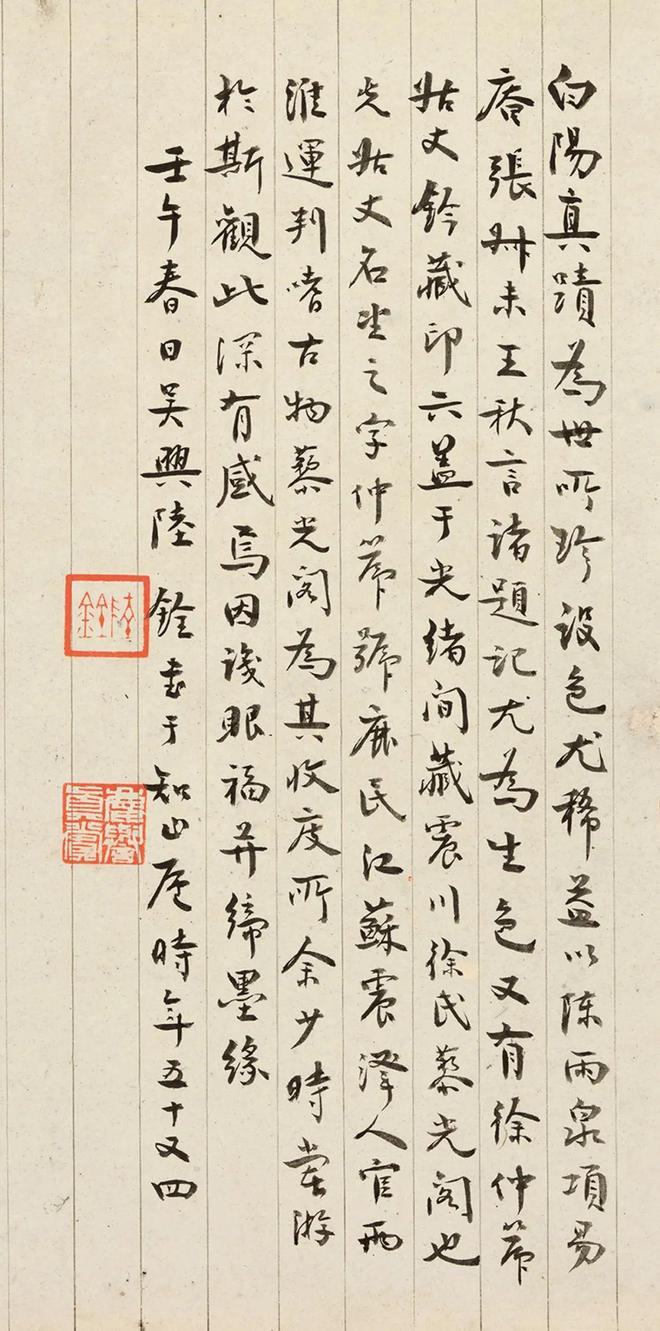 白陽真蹟為世所珍設色尤稀益以陳雨泉項易
庵張未未王秋言諸題記尤為生色又有徐仲芾
姑丈鈐藏印六蓋于光緒間藏震川徐氏藜光閣也
先姑丈名坐之字仲芾號鹿民江蘇震澤人官兩
淮運判嗜古物藜光閣為其收庋所余少時嘗游
於斯觀此深有感焉因識眼福并締墨緣
壬午春日吳興陸銓書于知止居時年五十又四
陸銓